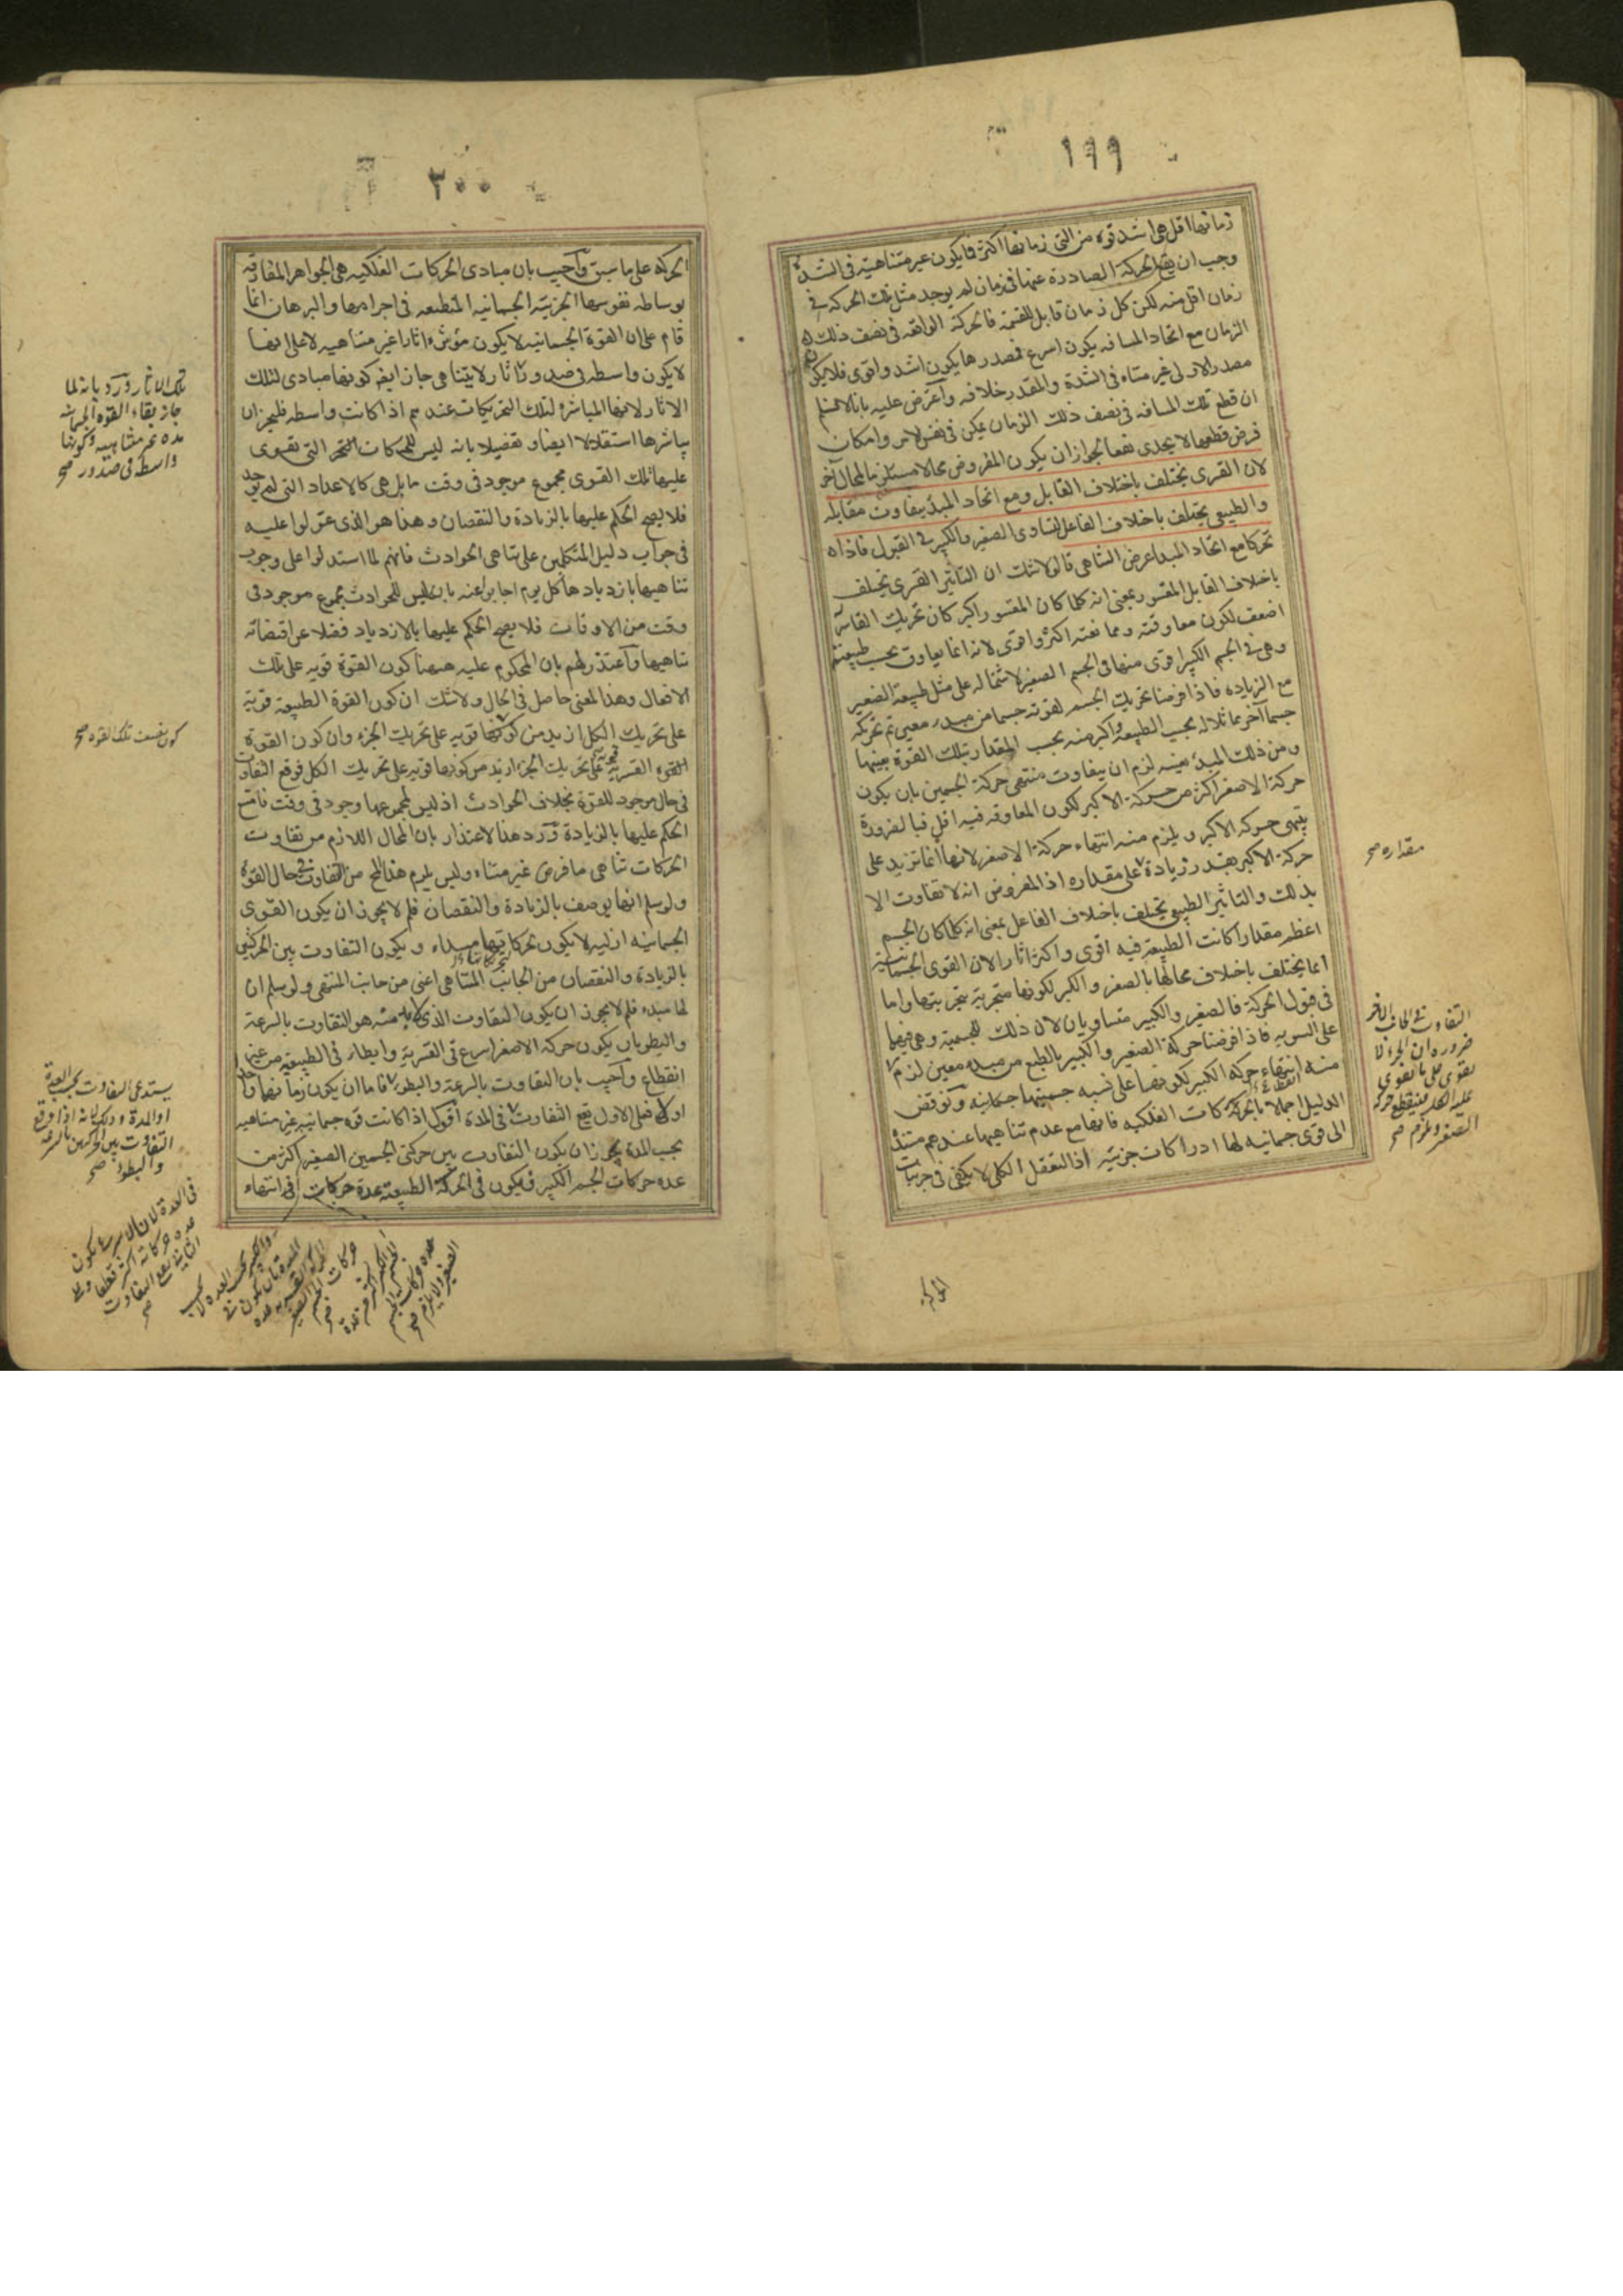 ١٩٩
زمانها اقل هى اشد قوة من التى زمانها اكثر فما يكون غير متناهية فى الشدة
وجب ان يقع الحركة الصادرة عنها فى زمان لم يوجد مثل تلك الحركة فى
زمان اقل منه لكن كل زمان قابل للقسمة فالحركة الواقعة فى نصف ذلك
الزمان مع اتحاد المسافه يكون اسرع فمصدرها يكون اشد واقوى فلا يكون
مصدر الاولى غير متناه فى الشدة والمقدر خلافه وأعترض عليه بانا لا نسلم
ان قطع تلك المسافه فى نصف ذلك الزمان يمكن فى نفس الامر وامكان
فرض قطعها لا يجدى نفعا لجواز ان يكون المفروض محالا مستلزما لمحال آخر
لان القسرى يختلف باختلاف القابل ومع اتحاد المبدأ يتفاوت مقابله
والطبيعى يختلف باختلاف الفاعل لتساوى الصغير والكبير فى القبول فاذا
تحركا مع اتحاد المبدا عرض التناهى قالوا لا شك ان التاثير القسرى يختلف
باختلاف القابل المقسور بمعنى انه كلما كان المقسور اكبر كان تحريك القاسر
اضعف لكون معاوقته وممانعته اكثر واقوى لانه انما يعاوق بحسب طبيعته
وهى فى الجسم الكبير اقوى منها فى الجسم الصغير لاشتماله على مثل طبيعة الصغير
مع الزياده فاذا فرضنا تحريك الجسم لقوته جسما من مبدء معين ثم تحريكه
جسما آخر مماثلا له بحسب الطبيعة واكبر منه بحسب المقدار بتلك القوة بعينها
ومن ذلك المبدء بعينه لزم ان يتفاوت منتهى حركة الجسمين بان يكون
حركة الاصغر اكثر من حركة الاكبر لكون المعاوقه فيه اقل فبالضرورة
ينتهى حركه الاكبر ويلزم منه انتهاء حركة الاصغر لانها انما تزيد على
حركة الاكبر بقدر زيادة على مقداره اذ المفروض انه لا تفاوت الا
بذلك والتاثير الطبيعى يختلف باختلاف الفاعل بمعنى انه كلما كان الجسم
اعظم مقدارا كانت الطبيعة فيه اقوى واكثر اثارا لان القوى الجسمانية
انما يختلف باختلاف محالها بالصغر والكبر لكونها متجزية بتجزيتها واما
فى قبول الحركة فالصغير والكبير متساويان لان ذلك للجسمية وهى فيهما
على السويه فاذا فرضنا حركة الصغير والكبير بالطبع من مبدء معين لزم
منه انتهاء حركه الكبير لكونها على نسبه جسميتها ونوقض
الدليل اجمالا بالحركات الفلكيه فانها مع عدم تناهيها عندهم مستندة
الى قوى جسمانيه لها ادراكات جزئية اذ التعقل الكلى لا يكفى فى جزئيات
مقداره صح
التفاوت فى الجانب الاخر
ضروره ان الجزء لا
يقوى على ما يقوى
عليه الكل فينقطع حركة
الصغير ويلزم صح
الحركه
٣٠٠
الحركه على ما سبق وأجيب بان مبادى الحركات الفلكيه هى الجواهر المفارقه
بوساطه نفوسها الجزئية الجسمانيه المنطبعه فى اجرامها والبرهان انما
قام على ان القوة الجسمانيه لا يكون مؤثرة اثارا غير متناهيه لا على انها
لا يكون واسطه فى صدور اثار لا يتناهى جاز ايضا كونها مبادى لتلك
الاثار لانها المباشره لتلك التحريكات عندهم اذا كانت واسطه فليجز ان
يباشرها استقلالا ايضا وتفصيلا بانه ليس للحركات التى تقوى
عليها تلك القوى مجموع موجود فى وقت ما بل هى كالاعداد التى لم يوجد
فلا يصح الحكم عليها بالزيادة والنقصان وهذا هو الذى عولوا عليه
فى جواب دليل المتكلمين على تناهى الحوادث فانهم لما استدلوا على وجوب
تناهيها بازديادها كل يوم اجابوا عنه بان ليس للحوادث مجموع موجود فى
وقت من الاوقات فلا يصح الحكم عليها بالازدياد فضلا عن اقتضائه
تناهيها وأعتذر لهم بان المحكوم عليه ههنا كون القوة قويه على تلك
الافعال وهذا المعنى حاصل فى الحال ولا شك ان كون القوة الطبيعية قوية
على تحريك الكل ازيد من كونها قويه على تحريك الجزء وان كون القوة
القوه القسرية على تحريك الجزء ازيد من كونها قويه على تحريك الكل فوقع التفاوت
فى حال موجود للقوة بخلاف الحوادث اذ ليس لمجموعها وجود فى وقت فامتنع
الحكم عليها بالزيادة ورد هذا الاعتذار بان المحال اللازم من تفاوت
الحركات تناهى ما فرض غير متناه وليس يلزم هذا المح من التفاوت فى حال القوة
ولو سلم انها يوصف بالزيادة والنقصان فلم لا يجوز ان يكون القوى
الجسمانيه ازليه لا يكون تحركاتها مبداء ويكون التفاوت بين الحركتين
بالزيادة والنقصان من الجانب المتناهى اعنى من جانب المنتهى ولو سلم ان
لها مبدء فلم لا يجوز ان يكون التفاوت الذى لا بد منه هو التفاوت بالسرعة
والبطؤ بان يكون حركه الاصغر اسرع فى القسرية وابطاء فى الطبيعيه من غير
انقطاع وأجيب بان التفاوت بالسرعة والبطؤ فاما ان يكون زمانهما واحد
اولا فعلى الاول يقع التفاوت فى المدة أقول اذا كانت قوه جسمانيه غير متناهيه
بحسب المدة يجوز ان يكون التفاوت بين حركتى الجسمين الصغير اكثر من
عده حركات الجسم الكبير فيكون فى الحركة الطبيعية عدة حركات فى انتهاء
تلك الاثار ورد بانه لما
جاز بقاء القوه الجسمانيه
مده غير متناهيه وكونها
واسطه فى صدور صح
كون ضعف تلك القوه صح
يستدعى التفاوت بحسب العدة
او المدة وذلك لانه اذا وقع
التفاوت بين الحركتين بالسرعه
والبطؤ صح
فى العدة لان الاسرع يكون
عده حركاته اكثر قطعا وعلى
الثانى يقع التفاوت
صح